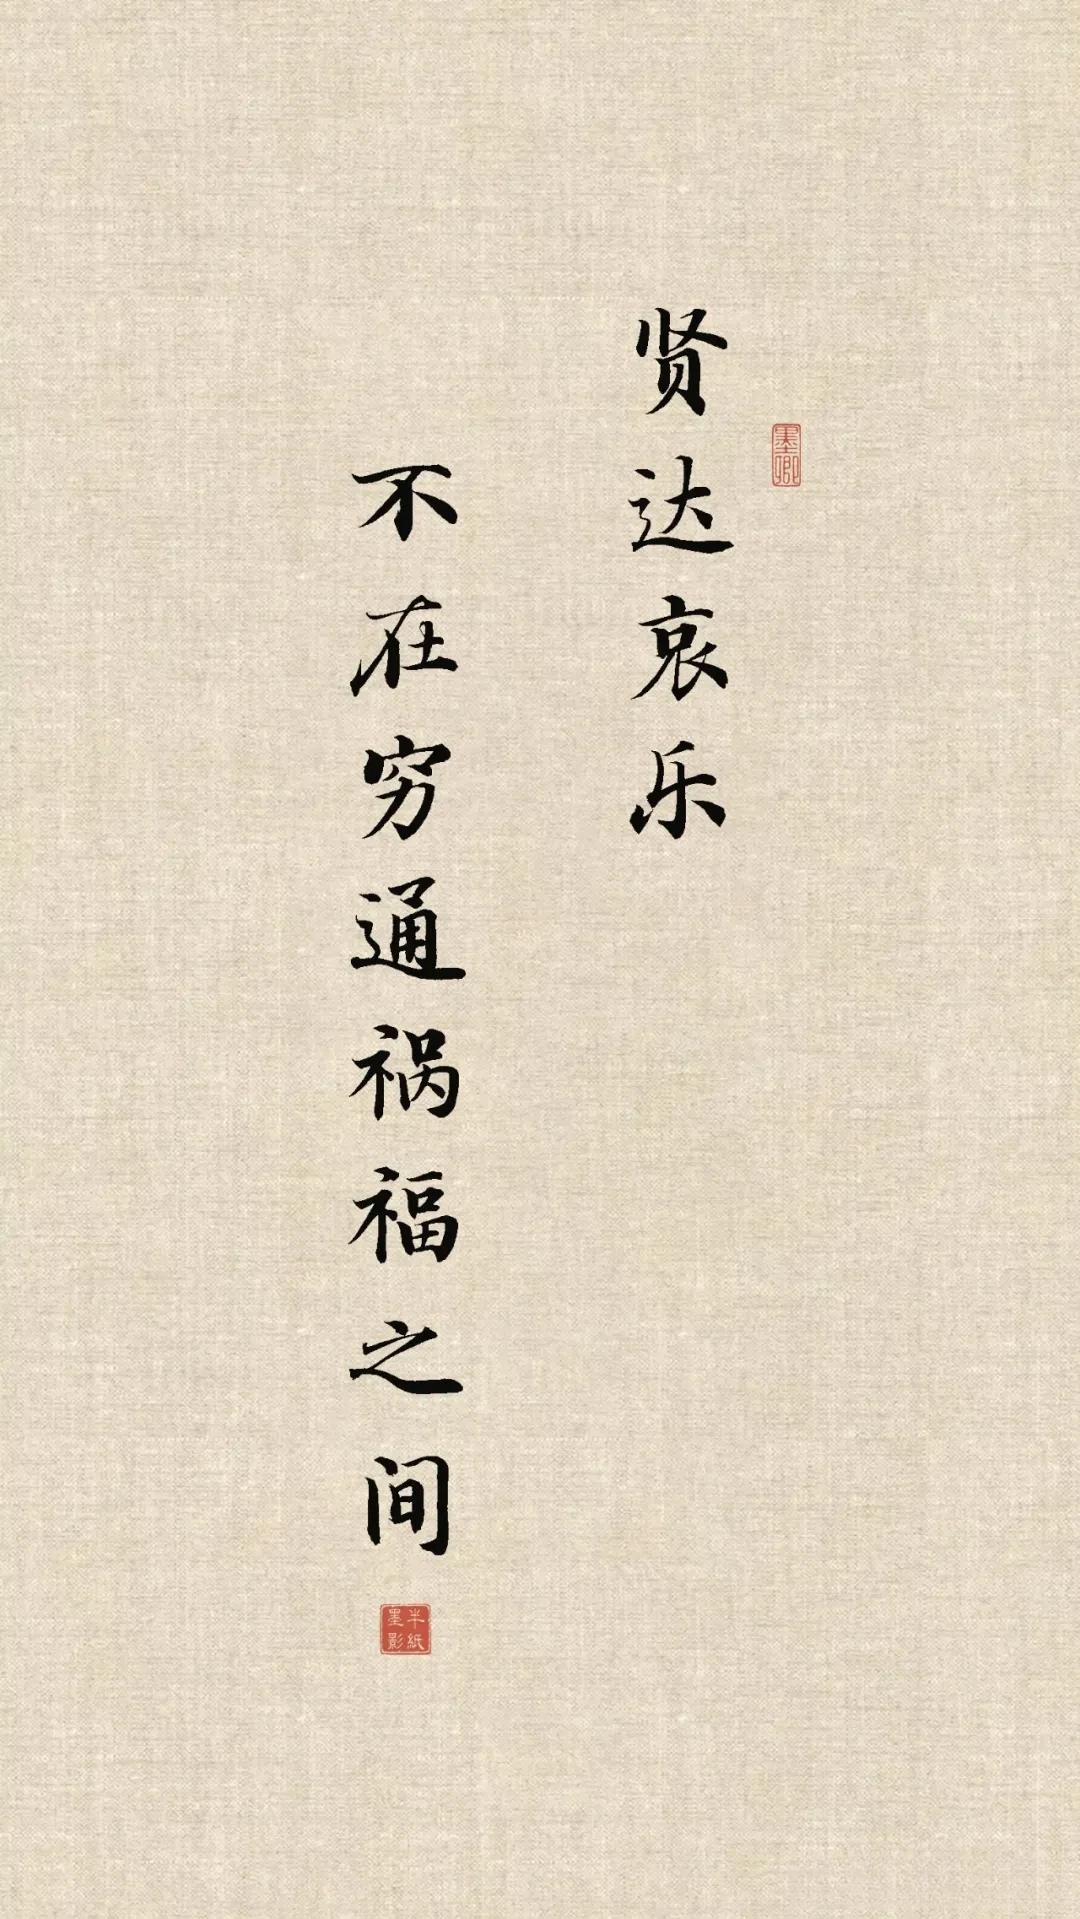 贤达哀乐
墨卿
不在穷通祸福之间
半紙
墨影